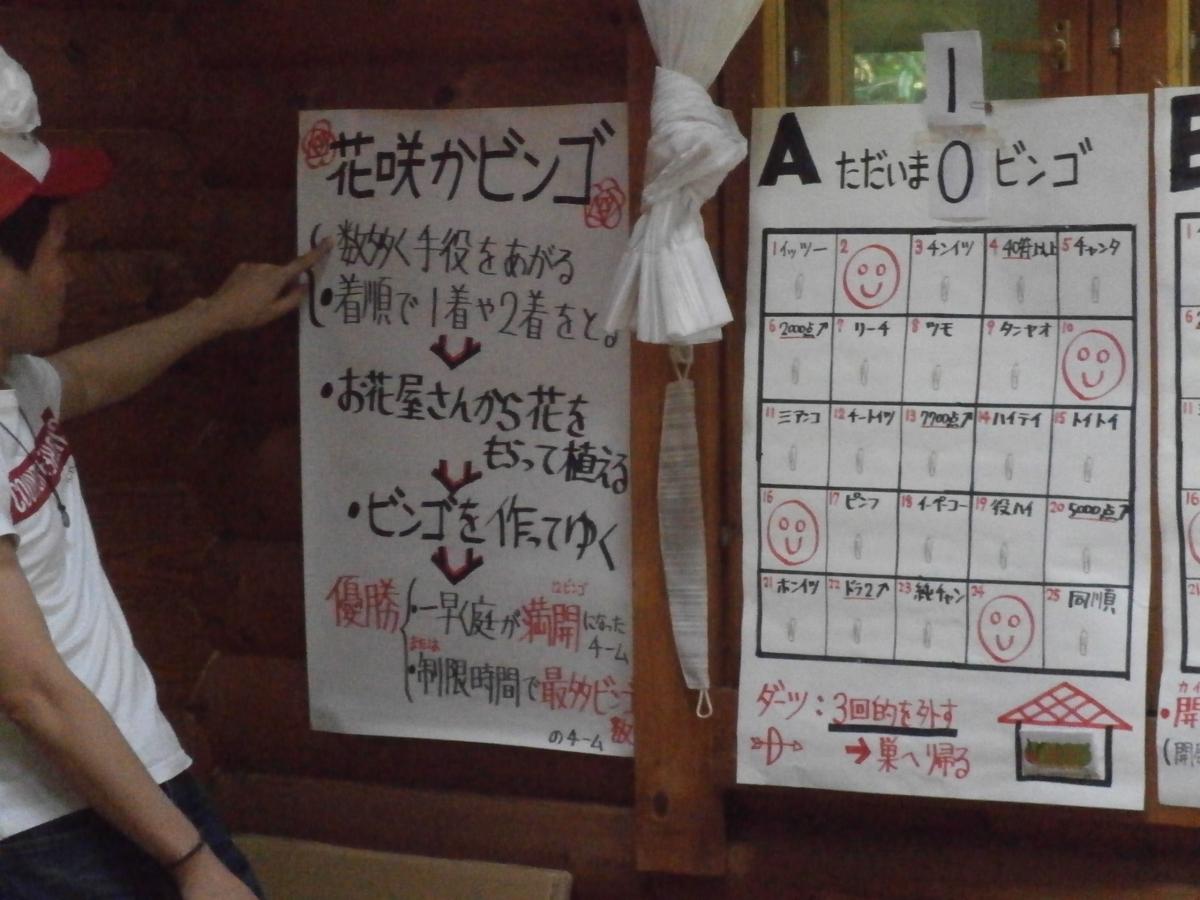 花咲かビンゴ
数多く手役をあがる
・着順で1着や2着をとる
・お花屋さんから花を
もらって植える
・ビンゴを作ってゆく
優勝
12ビンゴ
・一早く庭が満開になった
チーム
または
・制限時間で最多ビンゴ
数
のチーム
1
A ただいま 0 ビンゴ
1 イッツー 2 3 チンイツ 4 40符以上 5 チャンタ
6 2000点↗ 7 リーチ 8 ツモ 9 タンヤオ 10
11 三アンコ 12 チートイツ 13 7700点↗ 14 ハイテイ 15 トイトイ
16 17 ピンフ 18 イーペーコー 19 役ハイ 20 5000点↗
21 ホンイツ 22 ドラ2↗ 23 純チャン 24 25 同順
ダーツ：3回的を外す
→巣へ帰る